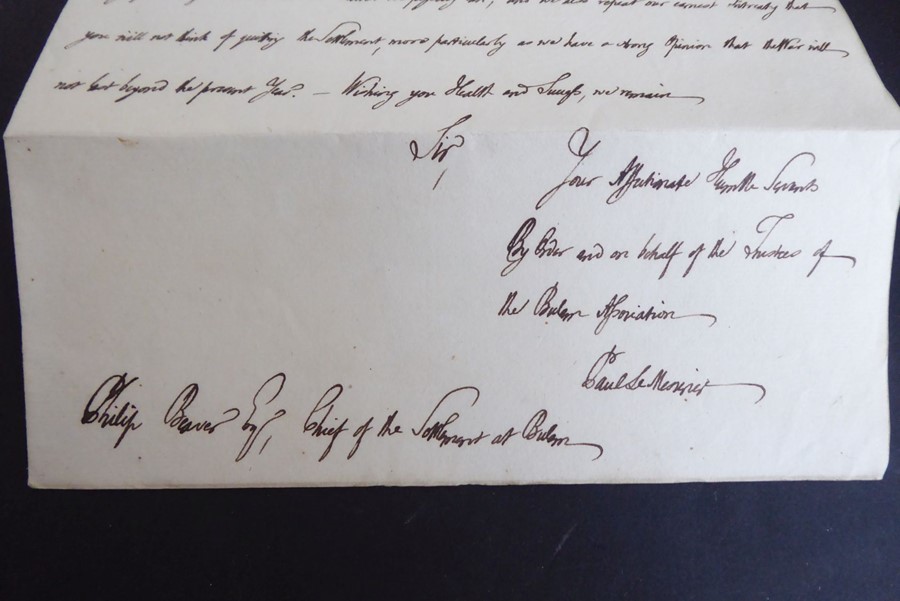 and we also repeat our earnest Intreaty that
you will not think of quitting the Settlement, more particularly as we have a strong Opinion that the War will
not last beyond the present Year. – Wishing you Health and Success, we remain
Sir,
Your Affectionate Humble Servants
By Order and on behalf of the Trustees of
the Bulam Association
Paul Le Mesurier
Philip Beaver Esq, Chief of the Settlement at Bulam